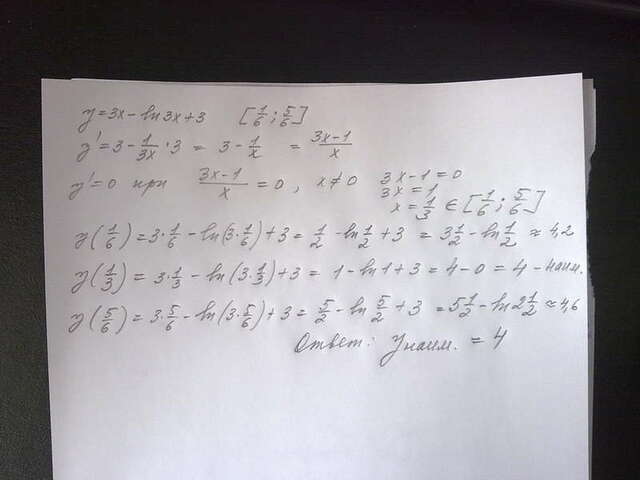 y=3x-ln3x+3 [1/6; 5/6]
y'=3-1/3x·3=3-1/x =3x-1/x
y'=0 при 3x-1/x=0, x≠0 3x-1=0
3x=1
x=1/3 ∈ [1/6; 5/6]
y(1/6)=3·1/6-ln(3·1/6)+3=1/2-ln1/2+3 =3 1/2-ln1/2≈4,2
y(1/3)=3·1/3-ln(3·1/3)+3=1-ln1+3=4-0=4-наим.
y(5/6)=3·5/6-ln(3·5/6)+3=5/2-ln5/2+3 =5 1/2-ln2 1/2≈4,6
Ответ: yнаим.=4